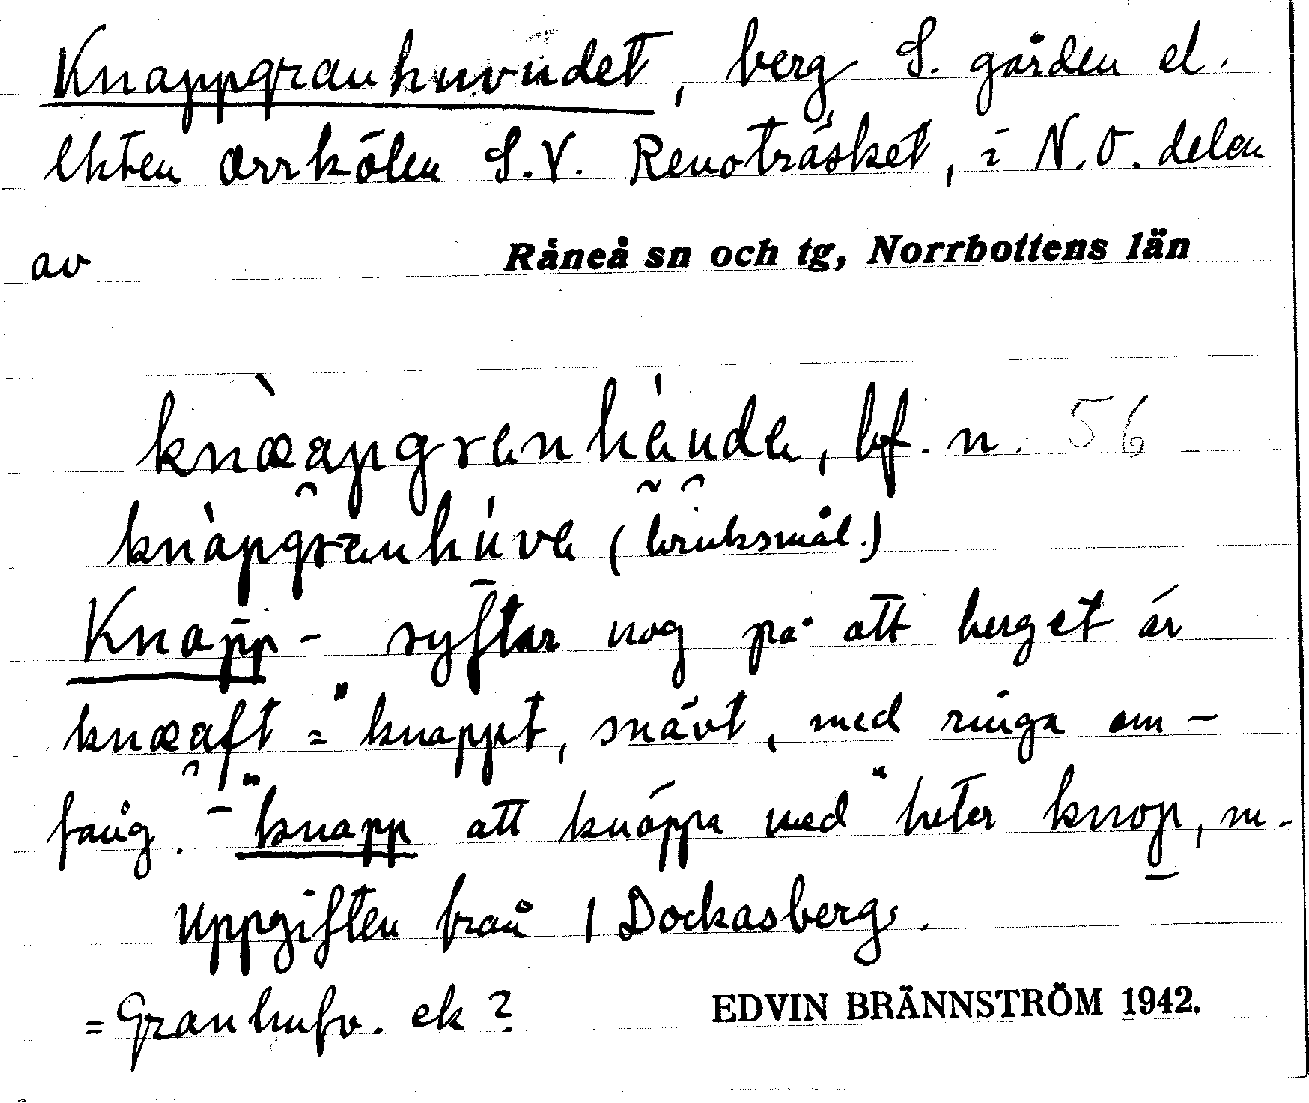 Knappgranhuvudet, berg S. gården el.
lkten Orrkölen S.V. Renoträsket, i N.O. delen
av Råneå sn och tg, Norrbottens län
knæapgranhàude, bf. n. 56
knàpgranhùve (bruksmål.)
Knapp- syftar nog på att berget är
knæaft = "knappt, snävt, med ringa om-
fång." - "knapp att knäppa med" heter knop, m.
Uppgiften från 1 Dockasberg.
= Granhufv. ek?
EDVIN BRÄNNSTRÖM 1942.